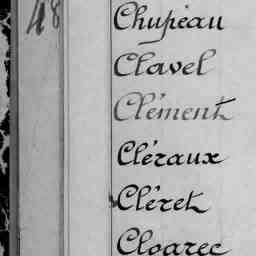 48
Chupeau
Clavel
Clément
Cléraux
Cléret
Cloarec